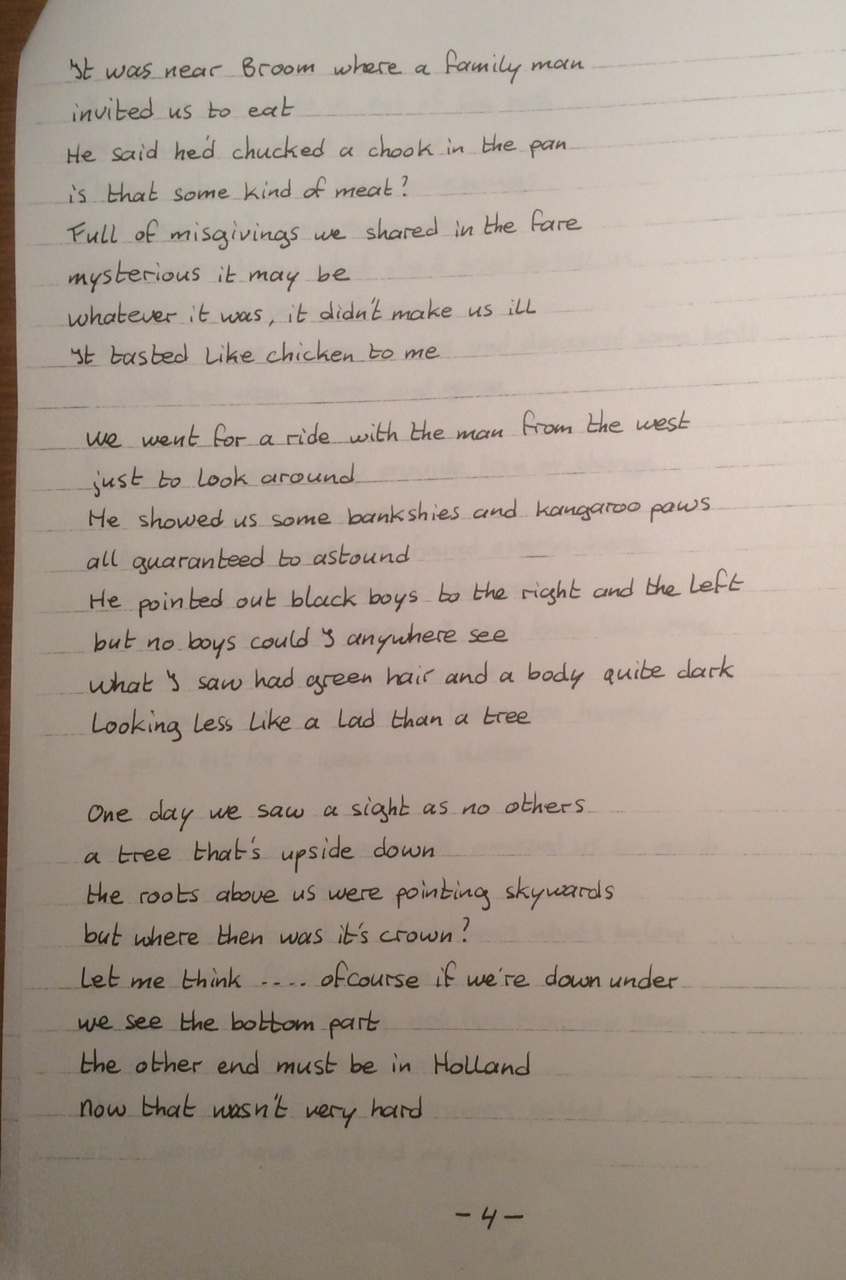 It was near Broom where a family man
invited us to eat
He said he'd chucked a chook in the pan
is that some kind of meat?
Full of misgivings we shared in the fare
mysterious it may be
whatever it was, it didn't make us ill
It tasted like chicken to me
we went for a ride with the man from the west
just to look around
He showed us some bankshies and kangaroo paws
all guaranteed to astound
He pointed out black boys to the right and the left
but no boys could I anywhere see
what I saw had green hair and a body quite dark
Looking less like a lad than a tree
One day we saw a sight as no others
a tree that's upside down
the roots above us were pointing skywards
but where then was it's crown?
Let me think .... ofcourse if we're down under
we see the bottom part
the other end must be in Holland
now that wasn't very hard
- 4 -